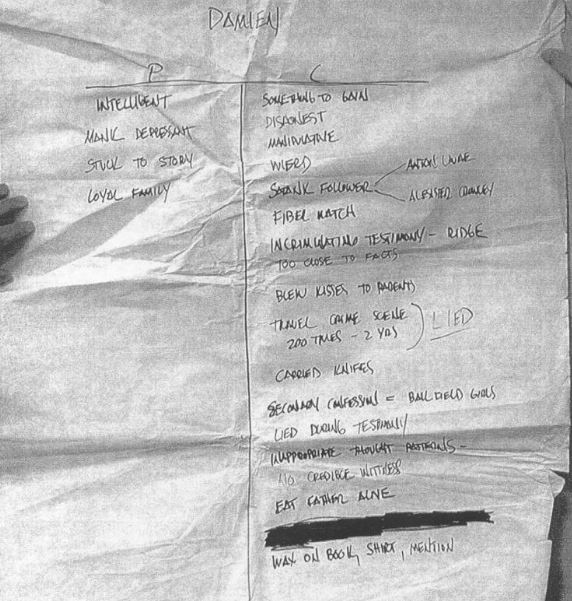 DAMIEN
P
C
INTELLIGENT
MANIC DEPRESSANT
STUCK TO STORY
LOYAL FAMILY
SOMETHING TO GAIN
DISHONEST
MANIPULATIVE
WIERD
SATANIC FOLLOWER
ANTON LAVAE
ALEISTER CROWLEY
FIBER MATCH
INCRIMINATING TESTIMONY - RIDGE
TOO CLOSE TO FACTS
BLEW KISSES TO PARENTS
TRAVEL CRIME SCENE
200 TIMES - 2 YRS
LIED
CARRIED KNIFES
SECONDARY CONFESSION = BALL FIELD GIRLS
LIED DURING TESTIMONY
INAPPROPRIATE THOUGHT PATTERNS -
NO CREDIBLE WITNESS
EAT FATHER ALIVE
WAX ON BOOK, SHIRT, MENTION